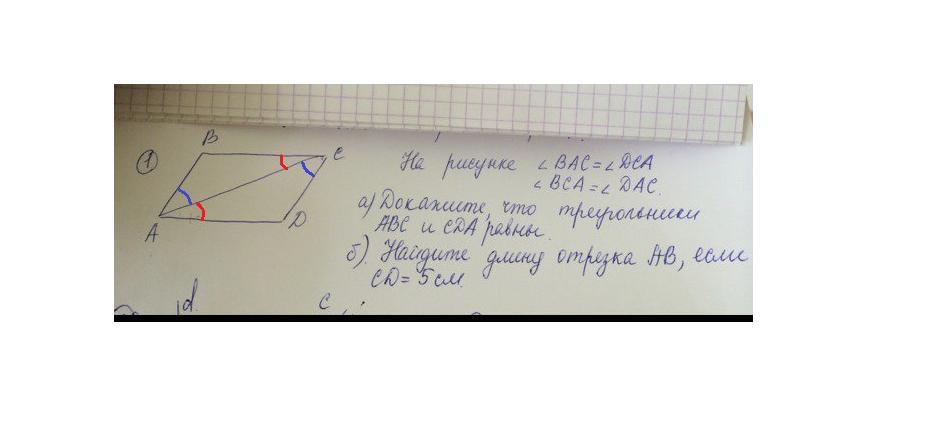 1
B
C
A
D
На рисунке ∠BAC=∠DCA
∠BCA=∠DAC.
а) Докажите, что треугольники
ABC и CDA равны.
б). Найдите длину отрезка AB, если
CD=5см.
d.
C